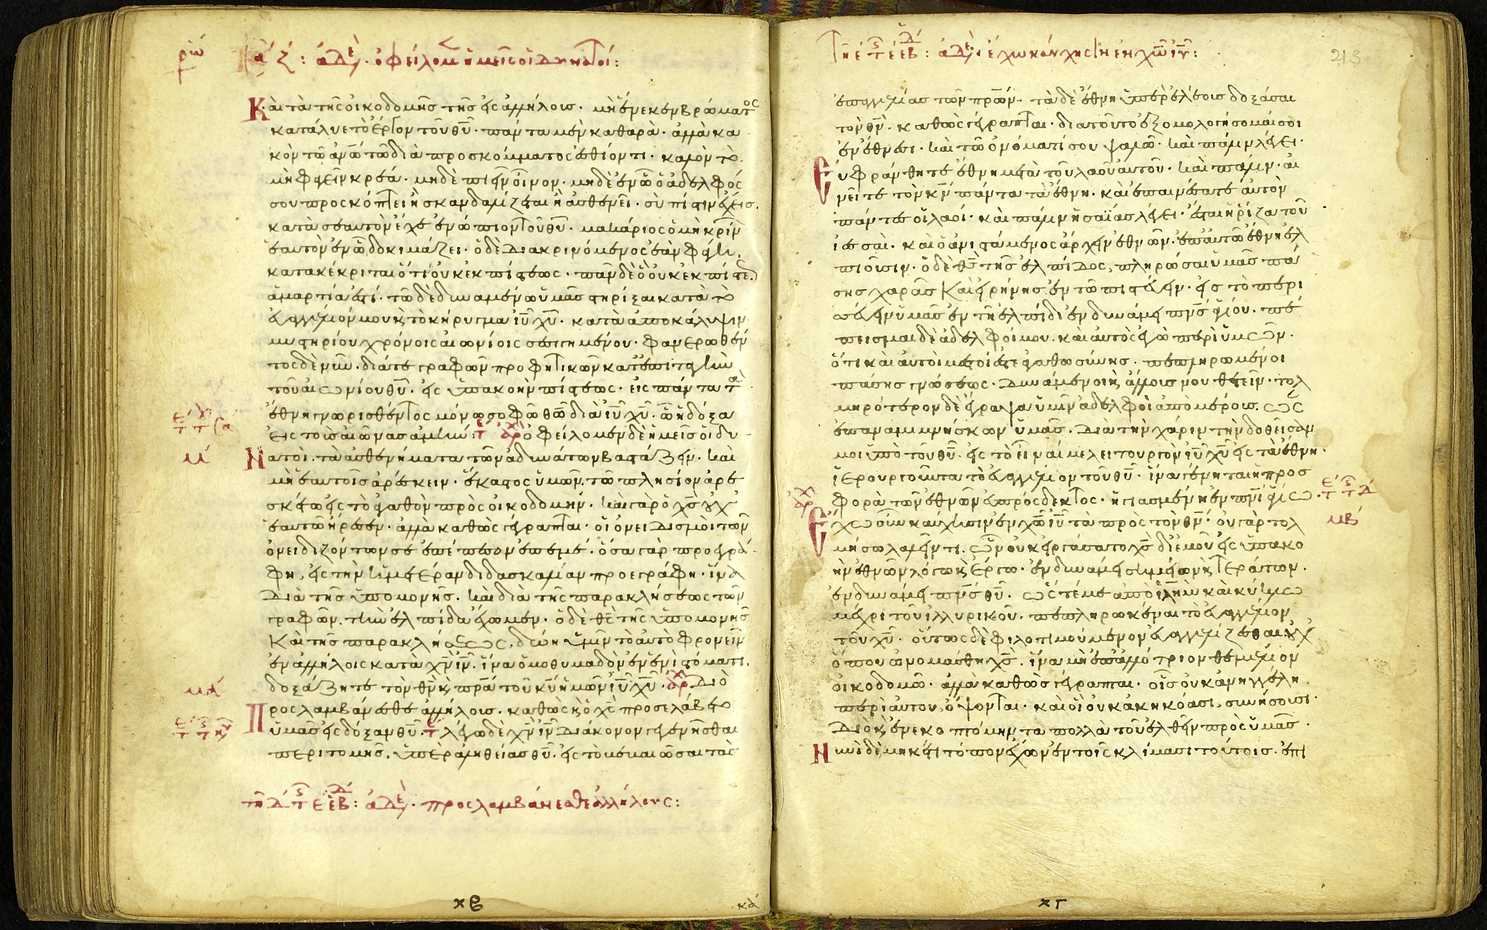 ζ: ἀδε. ὀφείλομ ἡμεῖς οἱ δυνατοί:
Καὶ τὰ τῆς οἰκοδομῆς τῆς εἰς ἀλλήλους. μὴ ἕνεκεν βρώματος
κατάλυε τὸ ἔργον τοῦ θυ. πάντα μὲν καθαρὰ. ἀλλὰ κα
κὸν τῶ ἀνω τῶ διὰ προσκόμματος ἐσθίοντι. καλὸν τὸ
μὴ φαγεῖν κρέα. μηδὲ πιεῖν οἶνον. μηδὲ ἐν ὧ ὁ ἀδελφός
σου προσκόπτει ἢ σκανδαλίζεται ἢ ἀσθενεῖ. σὺ πίστιν ἔχεις.
κατὰ σεαυτὸν ἔχε ἐνώπιον τοῦ θυ. μακάριος ὁ μὴ κρίνων
ἑαυτὸν ἐν ὧ δοκιμάζει. ὁ δὲ διακρινόμενος ἐὰν φάγη.
κατακέκριται ὅτι οὐκ ἐκ πίστεως. πᾶν δὲ ὃ οὐκ ἐκ πίστεως
ἁμαρτία ἐστί. τῶ δὲ δυναμένω ὑμᾶς στηρίξαι κατὰ τὸ
εὐαγγέλιόν μου κ τὸ κήρυγμα ιυ χυ. κατὰ ἀποκάλυψιν
μυστηρίου χρόνοις αἰωνίοις σεσιγημένου. φανερωθέν
τος δὲ νῦν. διά τε γραφῶν προφητικῶν κατ' ἐπιταγὴν
τοῦ αἰωνίου θυ. εἰς ὑπακοὴν πίστεως. εἰς πάντα τὰ
ἔθνη γνωρισθέντος μόνω σοφῶ θῶ διὰ ιυ χυ. ὧ ἡ δόξα
εἰς τοὺς αἰῶνας ἀμήν: ὀφείλομεν δὲ ἡμεῖς οἱ δυ
Νατοί. τὰ ἀσθενήματα τῶν ἀδυνάτων βαστάζειν. καὶ
μὴ ἑαυτοῖς ἀρέσκειν. ἕκαστος ὑμῶν. τῶ πλησίον ἀρε
σκέτω εἰς τὸ ἀγαθὸν πρὸς οἰκοδομήν. καὶ γὰρ ὁ χς οὐχ
ἑαυτῶ ἤρεσεν. ἀλλὰ καθὼς γέγραπται. οἱ ὀνειδισμοὶ τῶν
ὀνειδιζόντων σε ἐπέπεσον ἐπ' ἐμέ. ὅσα γὰρ προεγρά
φη, εἰς τὴν ἡμετέραν διδασκαλίαν προεγράφη. ἵνα
διὰ τῆς ὑπομονῆς. καὶ διὰ τῆς παρακλήσεως τῶν
γραφῶν. τὴν ἐλπίδα ἔχωμεν. ὁ δὲ θς τῆς ὑπομονῆς
Καὶ τῆς παρακλήσεως. δώη ὑμῖν τὸ αὐτὸ φρονεῖν
ἐν ἀλλήλοις κατὰ χν ιν. ἵνα ὁμοθυμαδὸν ἐν ἑνὶ στόματι.
δοξάζητε τὸν θν κ πρα τοῦ κυ ἡμῶν ιυ χυ. Διὸ
Προσλαμβάνεσθε ἀλλήλους. καθὼς κ ὁ χς προσελάβετο
ὑμᾶς εἰς δόξαν θυ. λέγω δὲ χν ιν διάκονον γεγενῆσθαι
περιτομῆς. ὑπὲρ ἀληθείας θυ. εἰς τὸ βεβαιῶσαι τὰς
τῆ Δ τ Ε ΕΒ: ἀδε. προσλαμβάνεσθε ἀλλήλους:
κβ
213
ἐπαγγελίας τῶν πρων. τὰ δὲ ἔθνη ὑπὲρ ἐλέους δοξάσαι
τὸν θν. καθὼς γέγραπται. διὰ τοῦτο ἐξομολογήσομαί σοι
ἐν ἔθνεσι. καὶ τῶ ὀνόματί σου ψαλῶ. καὶ πάλιν λέγει.
Εὐφράνθητε ἔθνη μετὰ τοῦ λαοῦ αὐτοῦ. καὶ πάλιν. αἰ
νεῖτε τὸν κν πάντα τὰ ἔθνη. καὶ ἐπαινέσατε αὐτὸν
πάντες οἱ λαοί. καὶ πάλιν ἠσαΐας λέγει. ἔσται ἡ ῥίζα τοῦ
ἰεσσαί. καὶ ὁ ἀνιστάμενος ἄρχειν ἐθνῶν. ἐπ' αὐτῶ ἔθνη ἐλ
πιοῦσιν. ὁ δὲ θς τῆς ἐλπίδος, πληρώσαι ὑμᾶς πά
σης χαρᾶς Καὶ εἰρήνης ἐν τῶ πιστεύειν. εἰς τὸ περι
σσεύειν ὑμᾶς ἐν τῆ ἐλπίδι ἐν δυνάμει πνς ἁγίου. πέ
πεισμαι δὲ ἀδελφοί μου. καὶ αὐτὸς ἐγὼ περὶ ὑμῶν.
ὅτι καὶ αὐτοὶ μεστοί ἐστε ἀγαθωσύνης. πεπληρωμένοι
πάσης γνώσεως. δυνάμενοι κ ἄλλους νουθετεῖν. τολ
μηρότερον δὲ ἔγραψα ὑμῖν ἀδελφοὶ ἀπὸ μέρους. ὡς
ἐπαναμιμνήσκων ὑμᾶς. διὰ τὴν χάριν τὴν δοθεῖσαν
μοι ὑπὸ τοῦ θυ. εἰς τὸ εἶναί με λειτουργὸν ιυ χυ εἰς τὰ ἔθνη.
ἱερουργοῦντα τὸ εὐαγγέλιον τοῦ θυ. ἵνα γένηται ἡ προσ
φορὰ τῶν ἐθνῶν εὐπρόσδεκτος. ἡγιασμένη ἐν πνι ἁγίω.
Ἔχω οὖν καύχησιν ἐν χω ιυ τὰ πρὸς τὸν θν. οὐ γὰρ τολ
μήσω λαλεῖν τι. ὧν οὐ κατειργάσατο χς δι' ἐμοῦ εἰς ὑπακο
ὴν ἐθνῶν λόγω κ ἔργω. ἐν δυνάμει σημείων κ τεράτων.
ἐν δυνάμει πνς θυ. ὥς τέ με ἀπὸ ιλημ καὶ κύκλω
μέχρι τοῦ ἰλλυρικοῦ. πεπληρωκέναι τὸ εὐαγγέλιον
τοῦ χυ. οὕτως δὲ φιλοτιμούμενον εὐαγγελίζεσθαι οὐχ
ὅπου ὠνομάσθη χς. ἵνα μὴ ἐπ' ἀλλότριον θεμέλιον
οἰκοδομῶ. ἀλλὰ καθὼς γέγραπται. οἷς οὐκ ἀνηγγέλη
περὶ αὐτοῦ, ὄψονται. καὶ οἳ οὐκ ἀκηκόασι, συνήσουσι.
Διὸ κ ἐνεκοπτόμην τὰ πολλὰ τοῦ ἐλθεῖν πρὸς ὑμᾶς.
Νυνὶ δὲ μηκέτι τόπον ἔχων ἐν τοῖς κλίμασι τούτοις. ἐπι
κγ